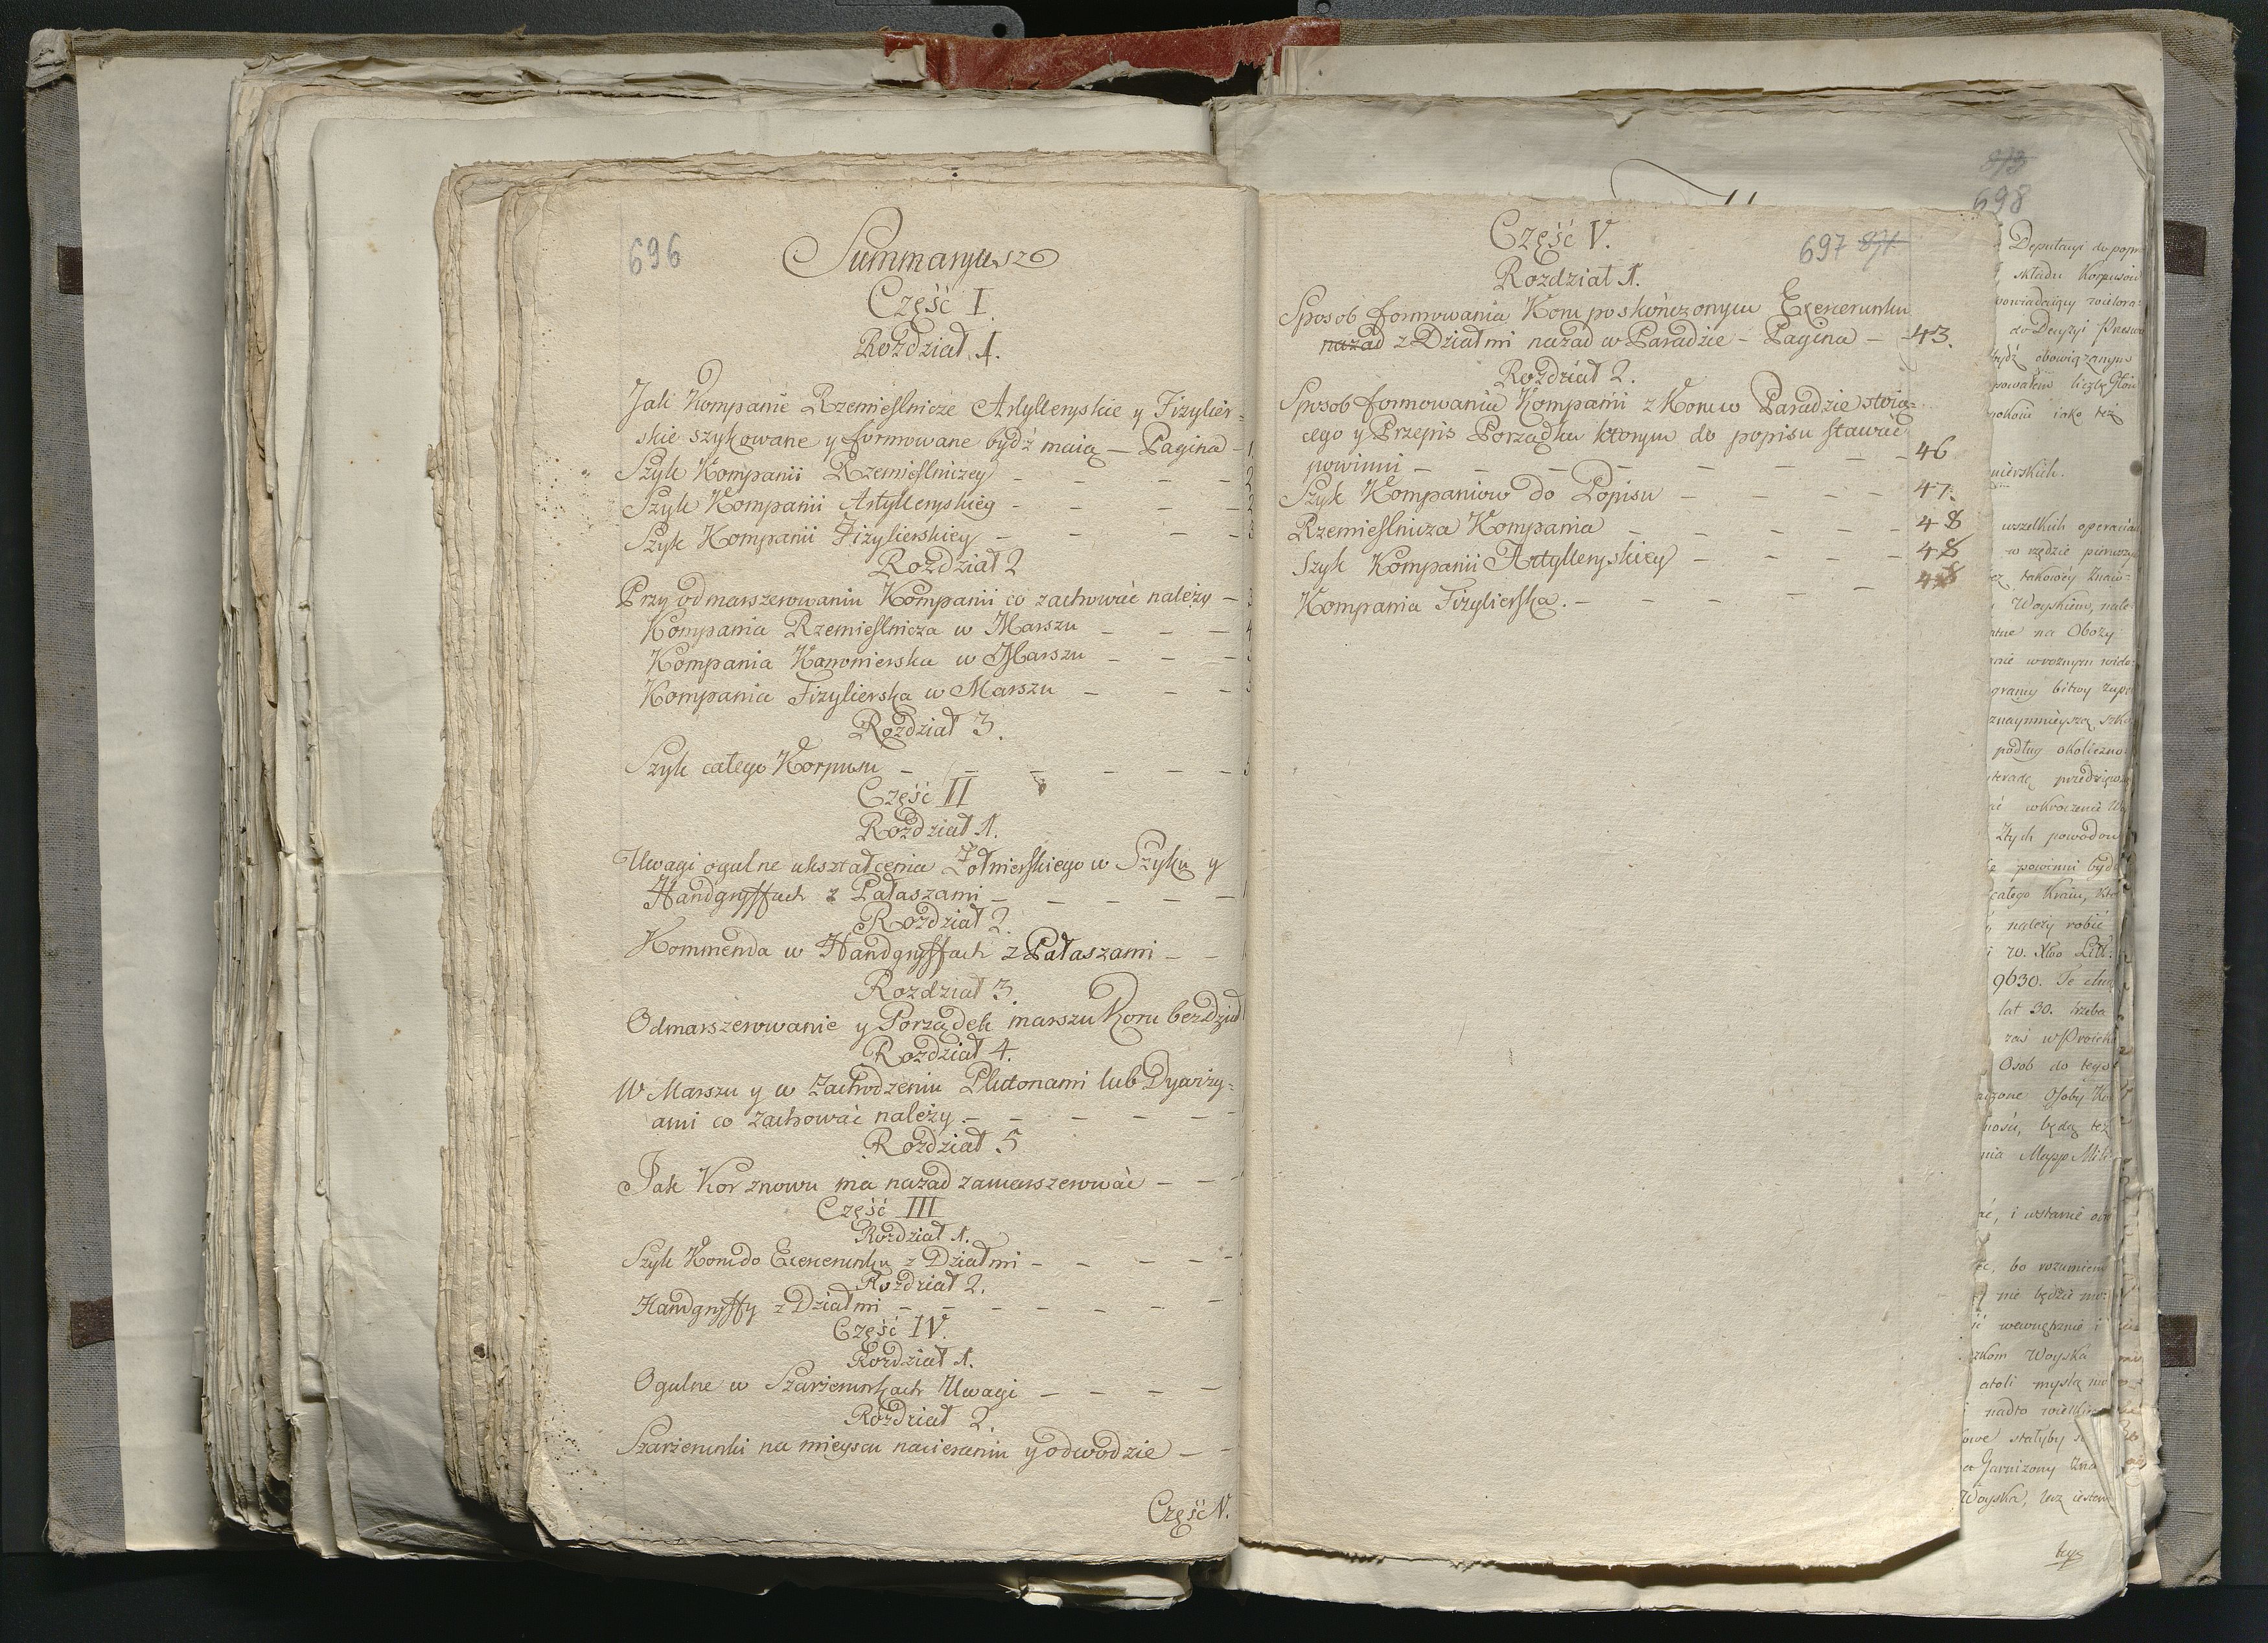 696
Summaryusz
Część I.
Rozdział 1.
Jak Kompanie Rzemieslnicze Artylleryskie y Fizylier=
skie szykowane y formowane bydź maią — Pagina - 1
Szyk Kompanii Rzemieslniczey - - - - 2
Szyk Kompanii Artylleryskiey - - - - 2
Szyk Kompanii Fizylierskiey - - - - 3
Rozdział 2
Przy odmarszerowaniu Kompanii co zachować należy - 3
Kompania Rzemieslnicza w Marszu - - - 4
Kompania Kanonierska w Marszu - - -
Kompania Fizylierska w Marszu - - - 5
Rozdział 3.
Szyk całego Korpusu - - - - - - 5
Część II
Rozdział 1.
Uwagi ogulne ukształcenia Żołnierskiego w Szyku y
Handgryffach z Pałaszami - - - - -
Rozdział 2.
Kommenda w Handgryffach z Pałaszami - -
Rozdział 3.
Odmarszerowanie y Porządek marszu Koru bez Dział
Rozdział 4.
W Marszu y w Zachodzeniu Plutonami lub Dywizy=
ami co zachować należy. - - - - -
Rozdział 5
Jak Kor znowu ma nazad zamarszerować - - -
Część III
Rozdział 1.
Szyk Koru do Exererunku z Działmi - - - -
Rozdział 2.
Handgryffy z Działmi - - - - - - -
Część IV.
Rozdział 1.
Ogulne w Szarżerunkach Uwagi - - - -
Rozdział 2.
Szarżerunki na mieyscu nacieraniu y odwodzie - -
Część V.
Część V.
697 871
Rozdział 1.
Sposob formowania Koru po skończonym Exererunku
nazad z Działmi nazad w Paradzie - Pagina - 43.
Rozdział 2.
Sposob formowania Kompanii z Koru w Paradzie stoią=
cego y Przepis Porządku ktorym do popisu stawać
powinni - - - - - - - 46
Szyk Kompaniow do Popisu - - - - 47.
Rzemieslnicza Kompania - - - - 48
Szyk Kompanii Artylleryskiey - - - - 48
Kompania Fizylierska. - - - - - 48
873
698
Deputacyi do popr
składu Korpusow
do Decyzyi Przesw
bydź obowiązanym
powałem liczbę Głow
iako też
nierskich.
wszelkich operacia
w rzędzie pierwszy
takowey Znaw=
Woyskiem, nale=
na Obozy
w roznym wido=
gramy bitwy zupe
znaymnieyszą szko
podług okoliczno=
przedsięwz
wkroczenie
Złych powodow
powinni bydź
całego Kraiu, kto
należy robić
W. Xtwo Litt.
9630. Te
lat 30. trzeba
zaś w Proiek
Osob do tego
Osoby Ko
będą też
nia Mapp Mili
i wstanie
bo rozumiem
nie będzie
wewnętrznie i
zkom Woyska
atoli myslą
nadto wielk
stałyby
Garnizony Zna
Woyska, lecz iestem